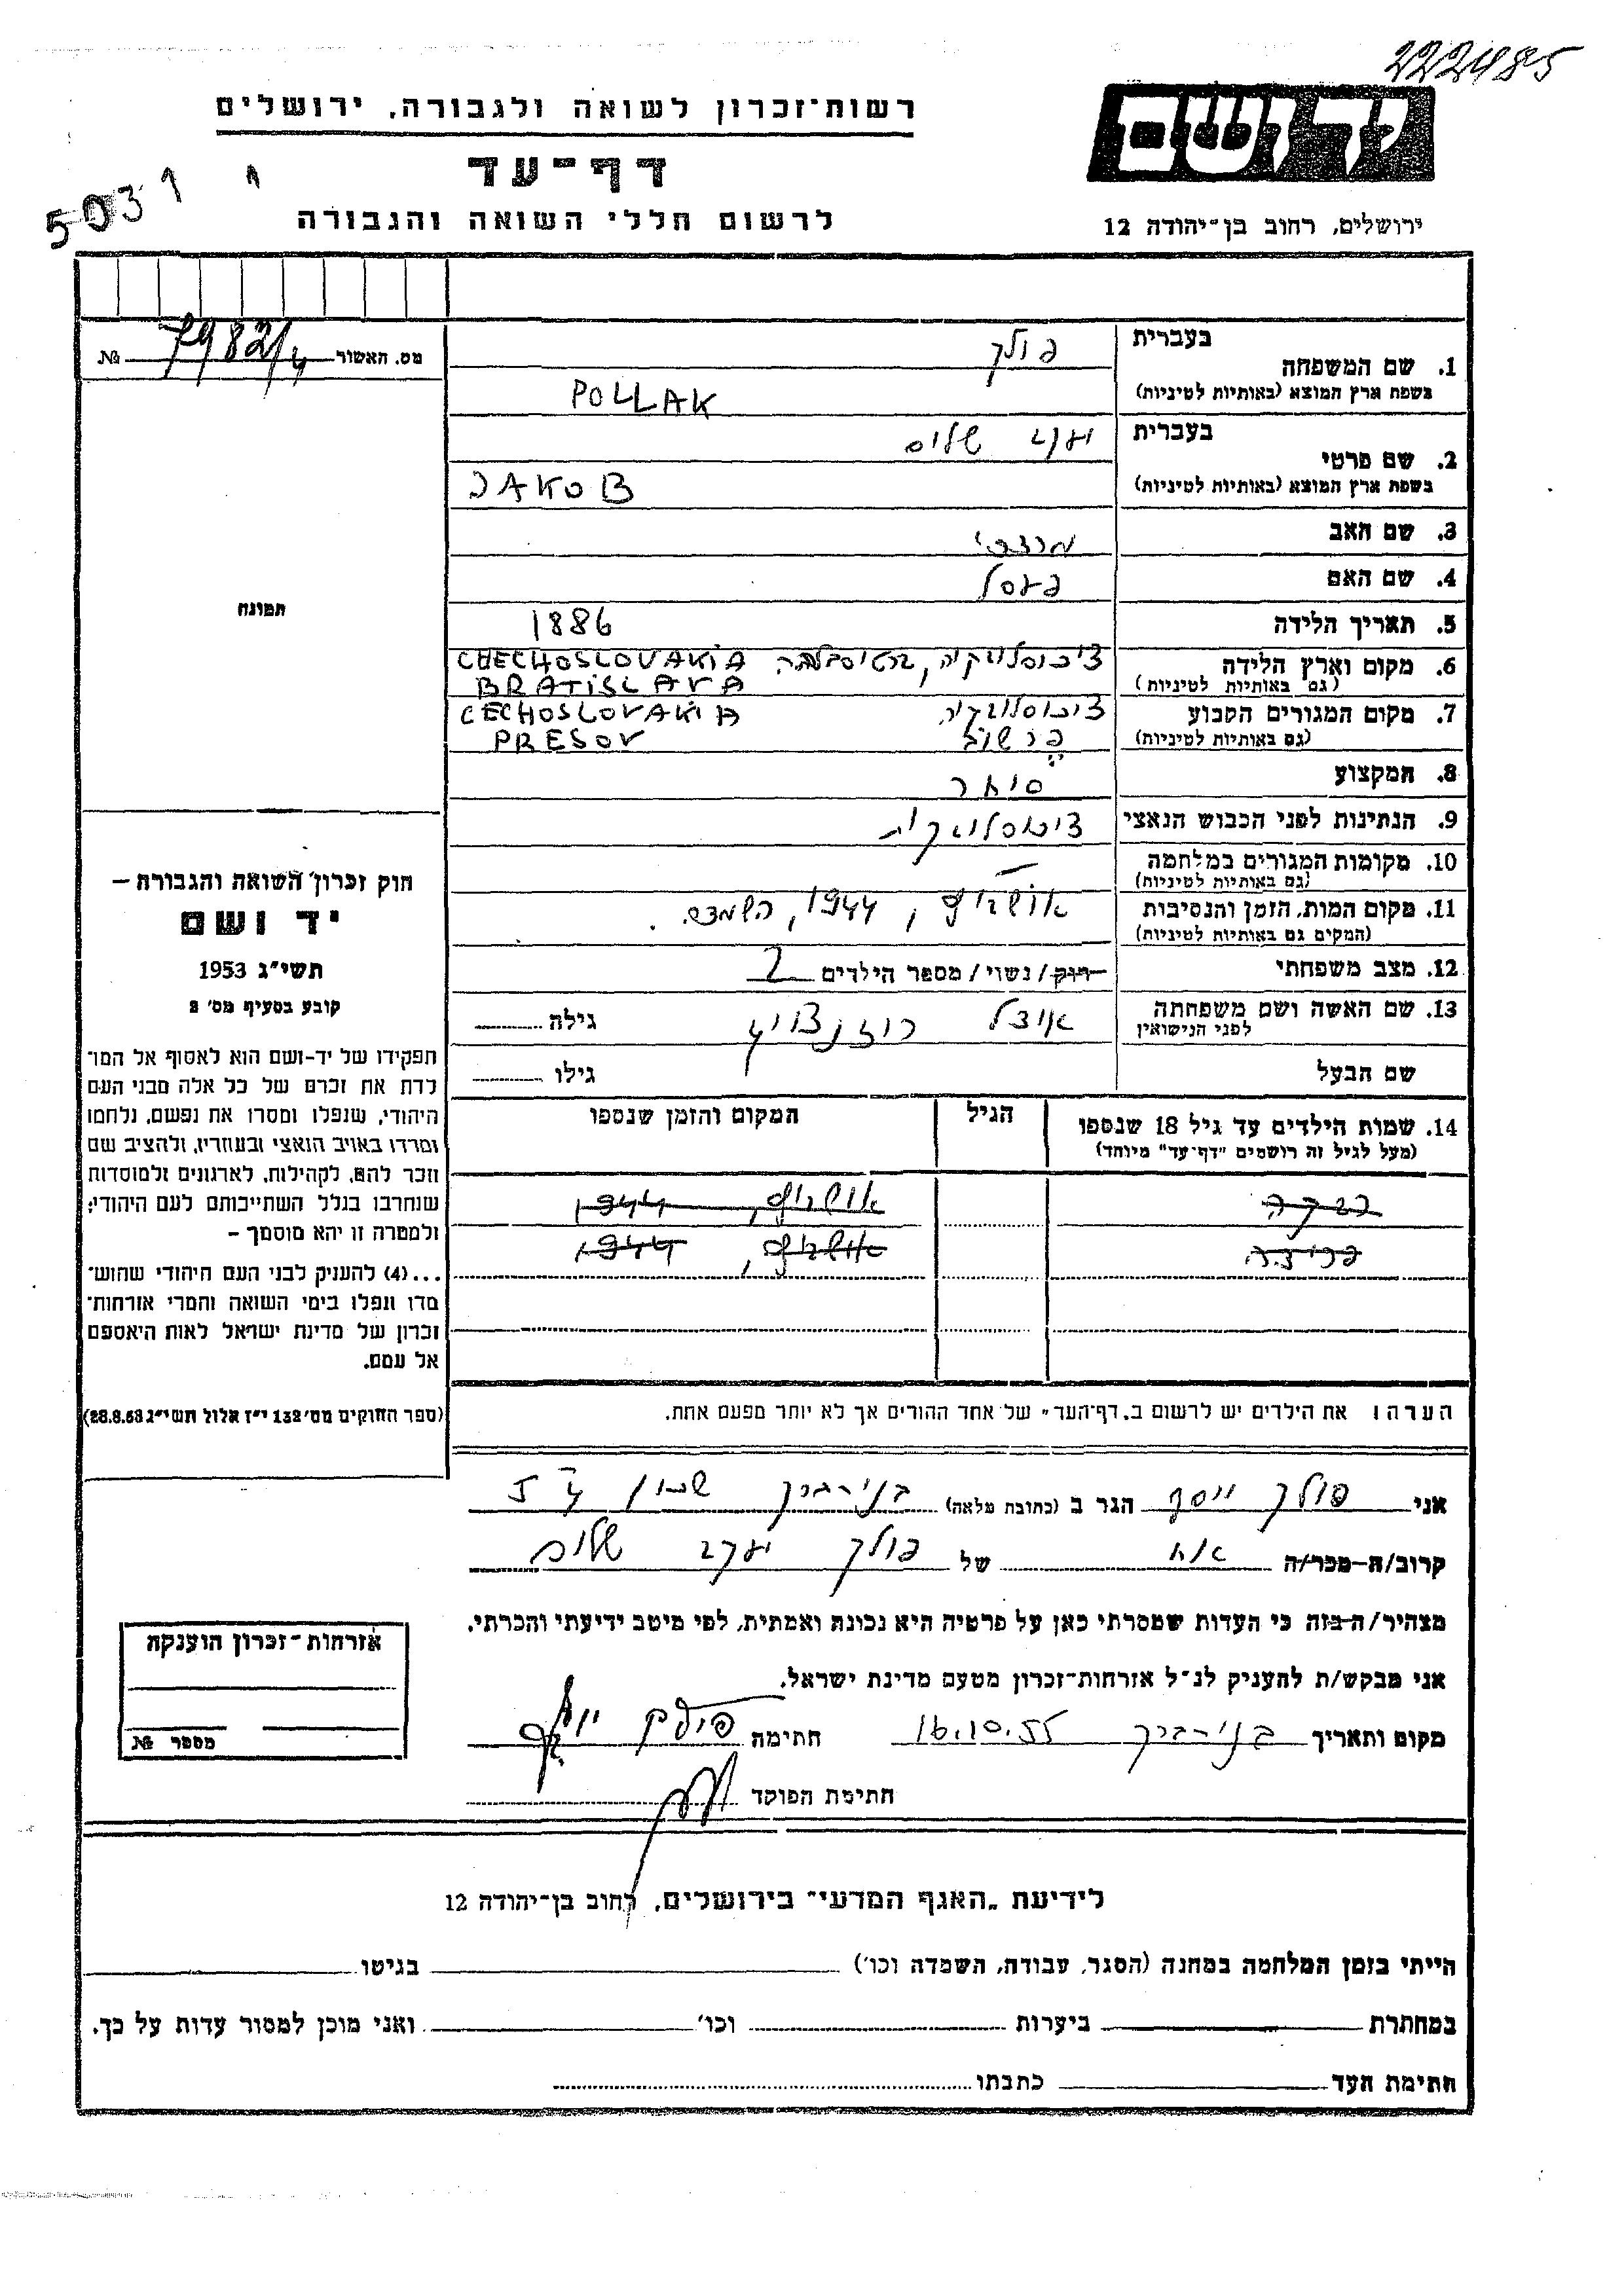 222485
רשות־זכרון לשואה ולגבורה, ירושלים
יד ושם
דף־עד
5031
לרשום חללי השואה והגבורה
ירושלים, רחוב בן־יהודה 12
מס. האשור 7982/4 №
1. שם המשפחה
בעברית פולק
בשפת ארץ המוצא (באותיות לטיניות) POLLAK
2. שם פרטי
בעברית יעקב שלום
בשפת ארץ המוצא (באותיות לטיניות) JAKOB
3. שם האב מרדכי
4. שם האם
תמונה
5. תאריך הלידה 1886
6. מקום וארץ הלידה צ'כוסלובקיה, ברטיסלבה CHECHOSLOVAKIA
(גם באותיות לטיניות) BRATISLAVA
7. מקום המגורים הקבוע צ'כוסלובקיה CECHOSLOVAKIA
(גם באותיות לטיניות) פרשוב PRESOV
8. המקצוע סוחר
9. הנתינות לפני הכבוש הנאצי צ'כוסלובקית
10. מקומות המגורים במלחמה —
(גם באותיות לטיניות)
11. מקום המות, הזמן והנסיבות אושביץ, 1944, השמדה.
(המקום גם באותיות לטיניות)
12. מצב משפחתי רווק/נשוי/מספר הילדים 2
13. שם האשה ושם משפחתה
לפני הנישואין
גילה
שם הבעל גילו
14. שמות הילדים עד גיל 18 שנספו הגיל המקום והזמן שנספו
(מעל לגיל זה רושמים "דף־עד" מיוחד)
רבקה אושביץ, 1944
פרידה אושביץ, 1944
חוק זכרון השואה והגבורה –
יד ושם
תשי״ג 1953
קובע בסעיף מס׳ 2
תפקידו של יד-ושם הוא לאסוף אל המו־
לדת את זכרם של כל אלה מבני העם
היהודי, שנפלו ומסרו את נפשם, נלחמו
ומרדו באויב הנאצי ובעוזריו, ולהציב שם
וזכר להם, לקהילות, לארגונים ולמוסדות
שנחרבו בגלל השתייכותם לעם היהודי;
ולמטרה זו יהא מוסמך –
...(4) להעניק לבני העם היהודי שהוש־
מדו ונפלו בימי השואה והמרי אזרחות־
זכרון של מדינת ישראל לאות היאספם
אל עמם.
(ספר החוקים מס׳ 132 י״ז אלול תשי״ג 28.8.53)
הערה: את הילדים יש לרשום ב„דף־העד" של אחד ההורים אך לא יותר מפעם אחת.
אני פולק יוסף הגר ב (כתובת מלאה) בני־ברק
קרוב/ה–מכר/ה אח של פולק יעקב שלום
מצהיר/ה בזה כי העדות שמסרתי כאן על פרטיה היא נכונה ואמתית, לפי מיטב ידיעתי והכרתי.
אני מבקש/ת להעניק לנ״ל אזרחות־זכרון מטעם מדינת ישראל.
מקום ותאריך בני־ברק 16.10.55 חתימה פולק יוסף
חתימת הפוקד
אזרחות־זכרון הוענקה
מספר №
לידיעת „האגף המדעי" בירושלים, רחוב בן־יהודה 12
הייתי בזמן המלחמה במחנה (הסגר, עבודה, השמדה וכו׳) בגיטו
במחתרת ביערות וכו׳ ואני מוכן למסור עדות על כך.
חתימת העד כתבתו